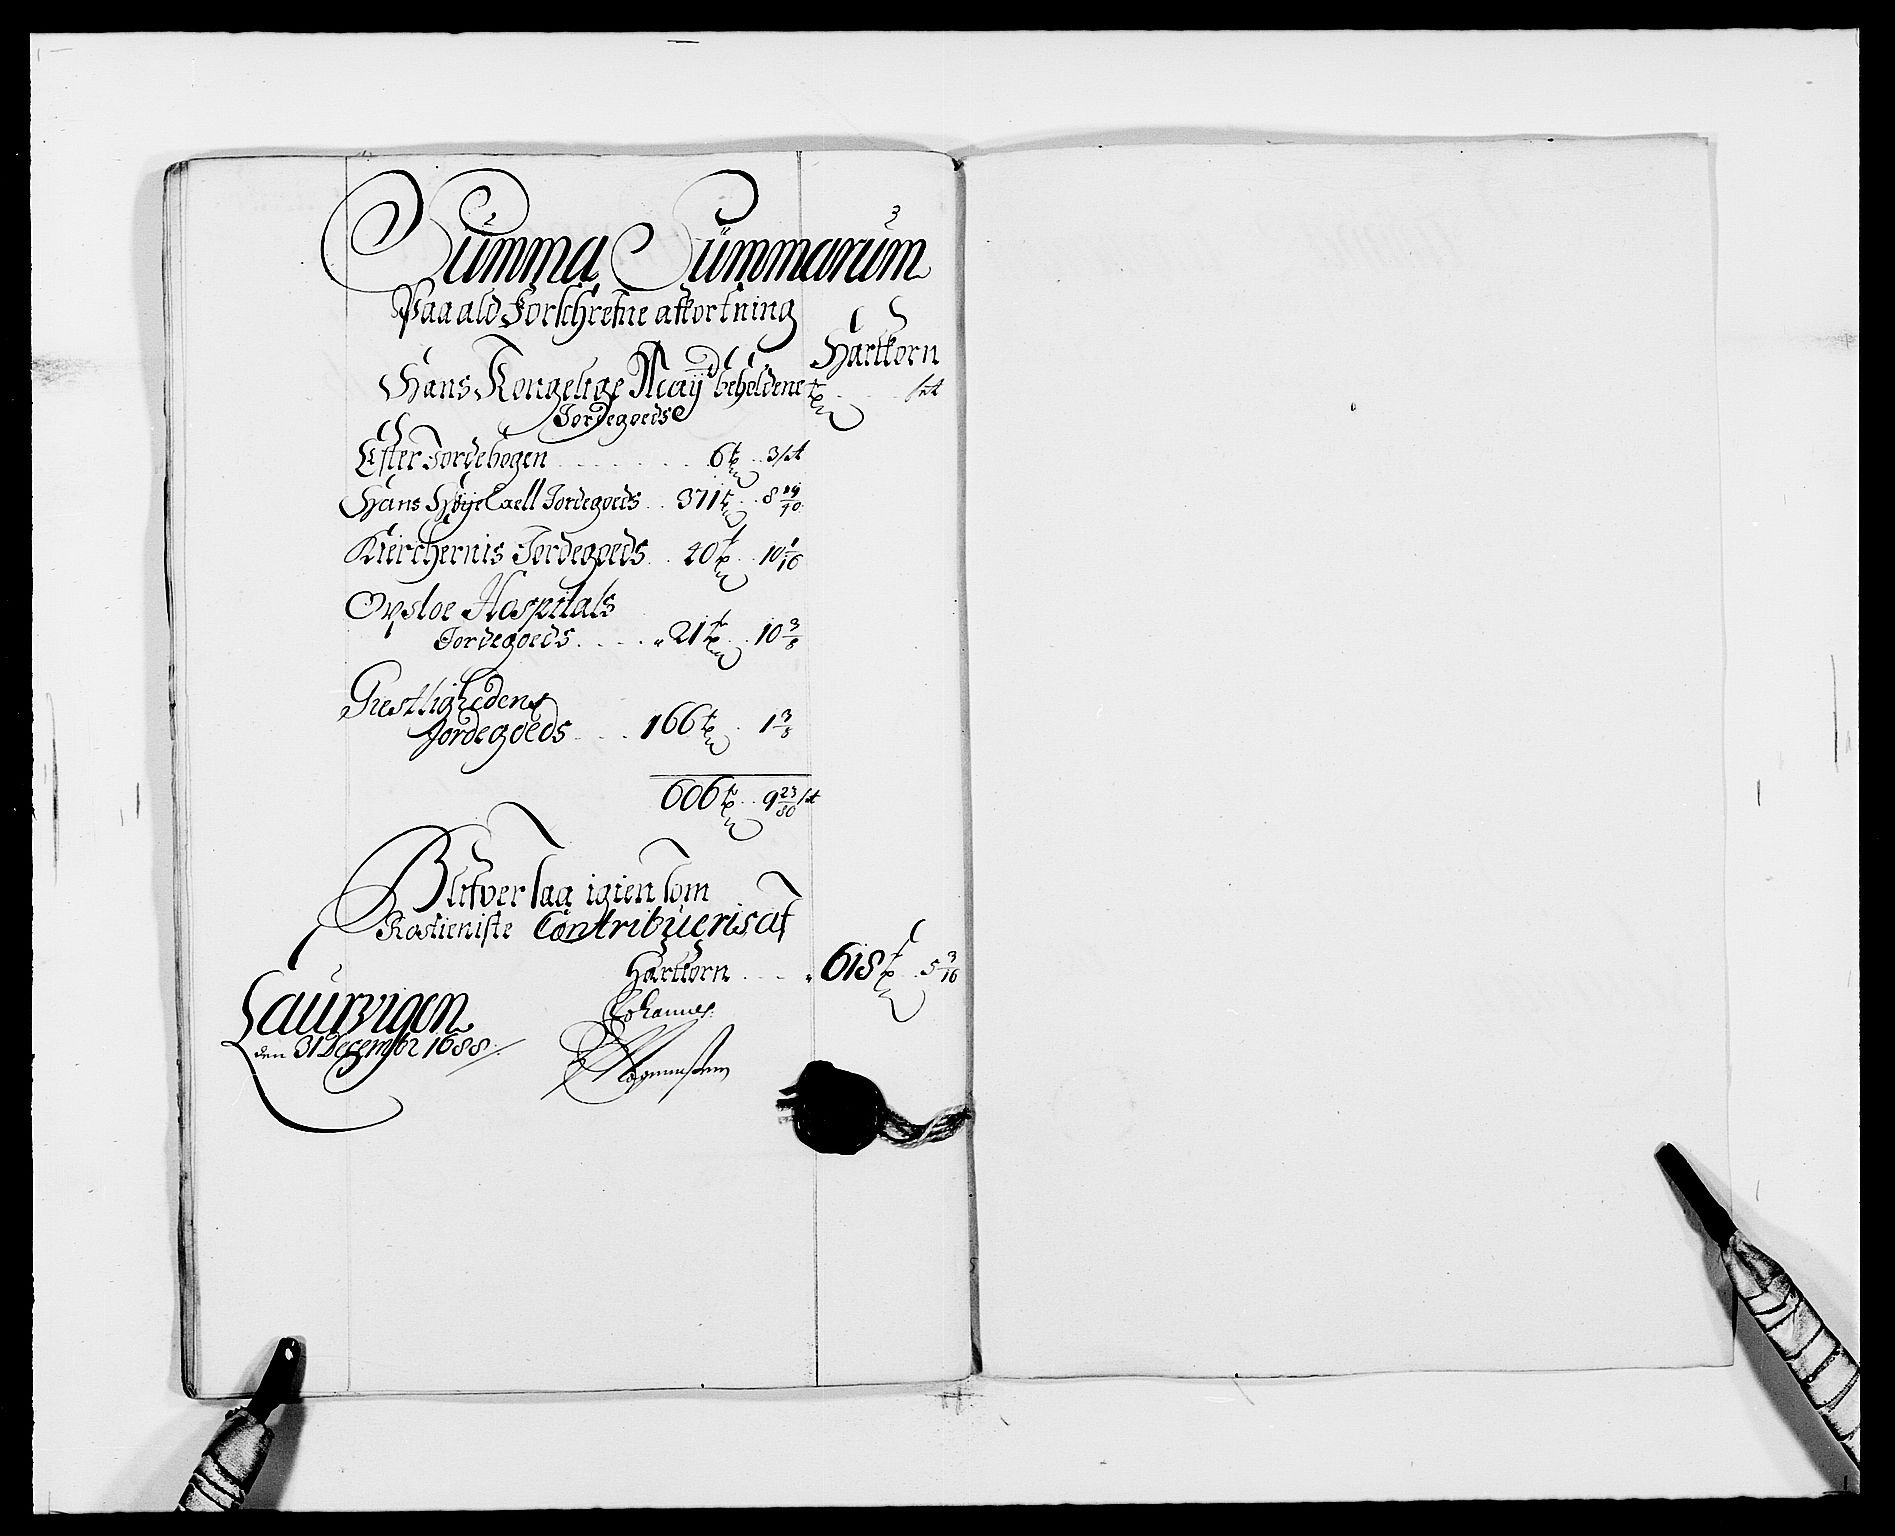 Summa Summarum
Paa ald Forschrefne afkortning
Hartkorn
Hans Kongelige Mayᵗᵗ beholdene tr sct
Jordegoeds
Efter Jordebogen . . . . . . . 6 tr . . 3 sct
Hans Høye Excell Jordegoeds . . 371 tr . . 8
Kierchernis Jordegoeds . . 40 tr . . 10 1/16
Opsloe Hospitals
Jordegoeds . . . . 21 tr . . 10 3/8
Giestlighedens
Jordegoeds . . . . 166 tr . . 1 3/8
606 tr . . 9 23/80 sct
Blifver saa igien som
Rostieniste Contribueris af
Hartkorn . . . . 618 tr . . 5 3/16
Laurvigen
den 31 Decembr 1688
Johannes